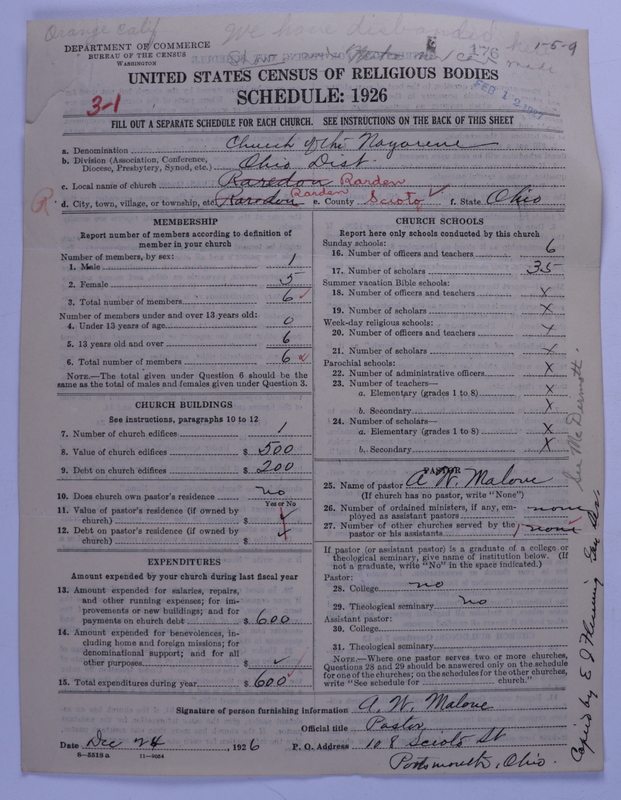 Orange Calif We have disbanded
1-5-9
176
made
DEPARTMENT OF COMMERCE
BUREAU OF THE CENSUS
WASHINGTON
UNITED STATES CENSUS OF RELIGIOUS BODIES
SCHEDULE: 1926
3-1
FEB 12 1927
FILL OUT A SEPARATE SCHEDULE FOR EACH CHURCH. SEE INSTRUCTIONS ON THE BACK OF THIS SHEET
a. Denomination Church of the Nazarene
b. Division (Association, Conference, Diocese, Presbytery, Synod, etc.) Ohio Dist.
c. Local name of church Raredon Rarden
R d. City, town, village, or township, etc. Raredon Rarden e. County Scioto ✓ f. State Ohio
MEMBERSHIP
Report number of members according to definition of
member in your church
Number of members, by sex:
1. Male 1
2. Female 5
3. Total number of members 6 ✓
Number of members under and over 13 years old:
4. Under 13 years of age 0
5. 13 years old and over 6
6. Total number of members 6
NOTE.—The total given under Question 6 should be the
same as the total of males and females given under Question 3.
CHURCH BUILDINGS
See instructions, paragraphs 10 to 12
7. Number of church edifices 1
8. Value of church edifices $ 500
9. Debt on church edifices $ 200
10. Does church own pastor's residence no
Yes or No
11. Value of pastor's residence (if owned by
church) $ ✓
12. Debt on pastor's residence (if owned by
church) $ ✓
EXPENDITURES
Amount expended by your church during last fiscal year
13. Amount expended for salaries, repairs,
and other running expenses; for im-
provements or new buildings; and for
payments on church debt $ 600
14. Amount expended for benevolences, in-
cluding home and foreign missions; for
denominational support; and for all
other purposes $ ✓
15. Total expenditures during year $ 600 ✓
CHURCH SCHOOLS
Report here only schools conducted by this church
Sunday schools:
16. Number of officers and teachers 6
17. Number of scholars 35
Summer vacation Bible schools:
18. Number of officers and teachers X
19. Number of scholars X
Week-day religious schools:
20. Number of officers and teachers X
21. Number of scholars X
Parochial schools:
22. Number of administrative officers X
23. Number of teachers—
a. Elementary (grades 1 to 8) X
b. Secondary X
24. Number of scholars—
a. Elementary (grades 1 to 8) X
b. Secondary X
PASTOR
25. Name of pastor A W. Malone
(If church has no pastor, write "None")
26. Number of ordained ministers, if any, em-
ployed as assistant pastors none
27. Number of other churches served by the
pastor or his assistants 1 none ✓
If pastor (or assistant pastor) is a graduate of a college or
theological seminary, give name of institution below. (If
not a graduate, write "No" in the space indicated.)
Pastor:
28. College no
29. Theological seminary no
Assistant pastor:
30. College
31. Theological seminary
NOTE.—Where one pastor serves two or more churches,
Questions 28 and 29 should be answered only on the schedule
for one of the churches; on the schedules for the other churches,
write "See schedule for church."
See McDermott.
Copied by E J Fleming Gen Sec.
Signature of person furnishing information A. W. Malone
Official title Pastor
Date Dec 24, 1926 P. O. Address 108 Scioto St
Portsmouth, Ohio.
8-5518a 11-9054